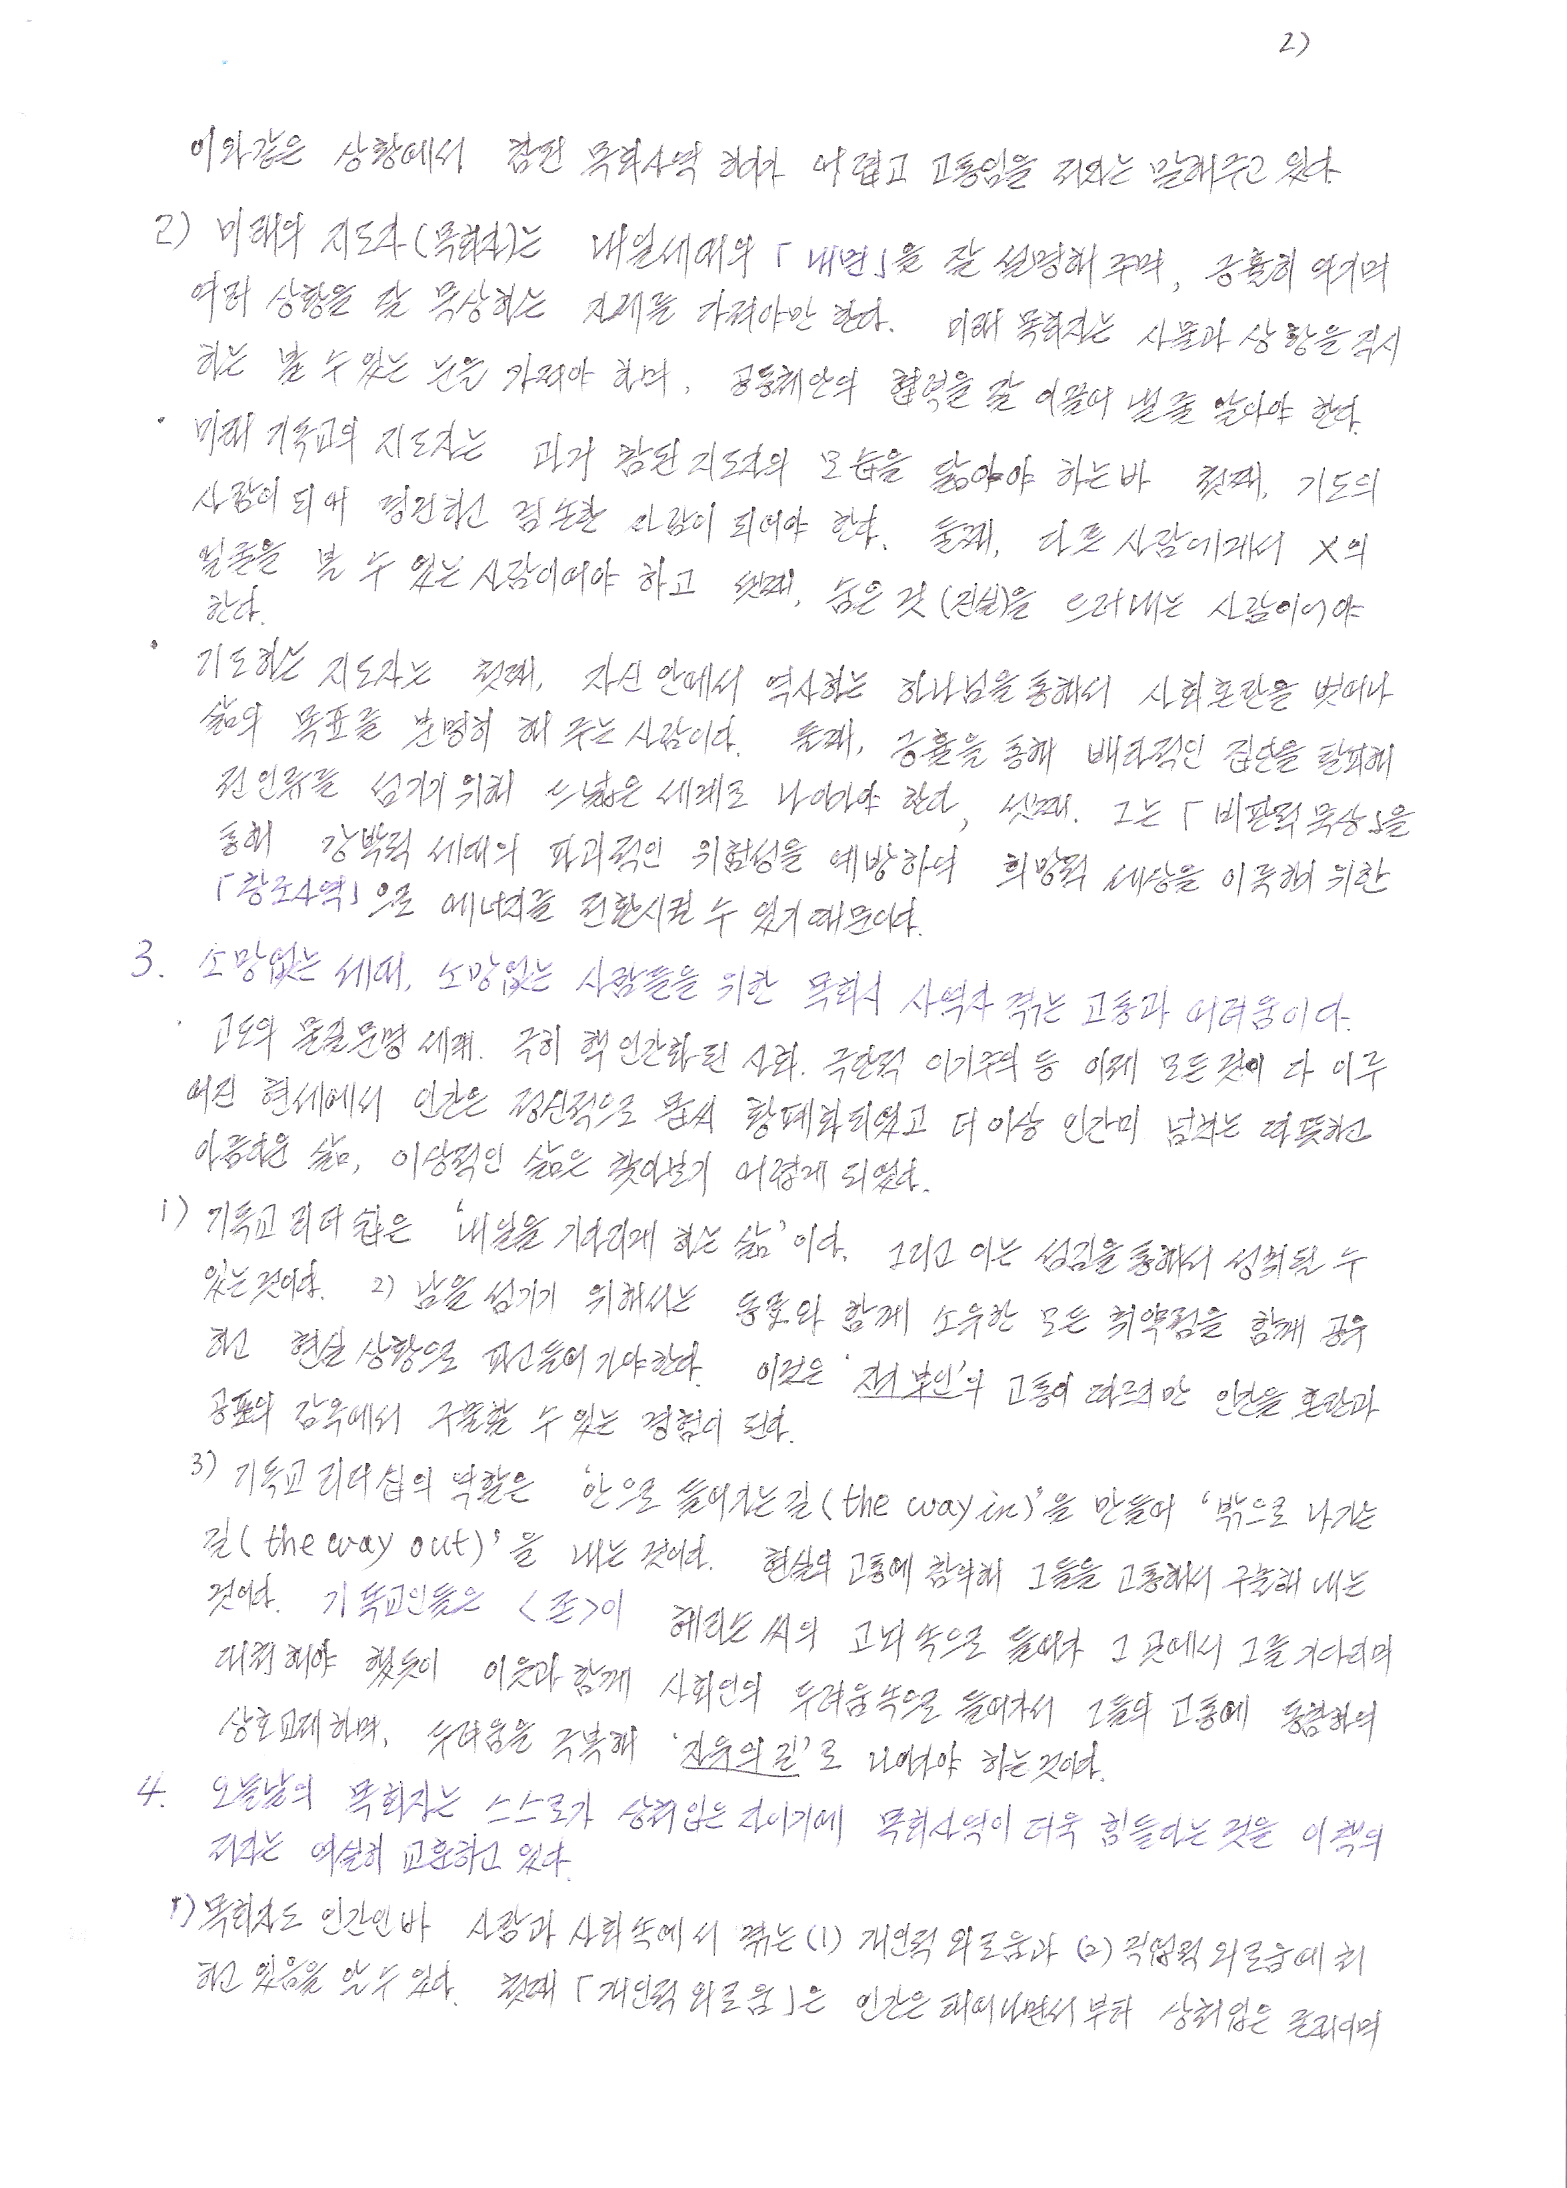 2)
이와같은 상황에서 참된 목회사역 하기가 어렵고 고통임을 저자는 말해주고 있다.
2) 미래의 지도자(목회자)는 내일세대의 「내면」을 잘 설명해 주며, 긍휼히 여기며
여러 상황을 잘 묵상하는 자세를 가져야만 한다. 미래 목회자는 사물과 상황을 직시
하는 볼 수 있는 눈을 가져야 하며, 공동체안의 협력을 잘 이끌어 낼 줄 알아야 한다.
· 미래 기독교의 지도자는 과거 참된 지도자의 모습을 닮아야 하는바 첫째, 기도의
사람이 되어 경건하고 겸손한 사람이 되어야 한다. 둘째, 다른 사람에게서 X의
얼굴을 볼 수 있는 사람이어야 하고 셋째, 숨은 것(진실)을 드러내는 사람이어야
한다.
· 기도하는 지도자는 첫째, 자신 안에서 역사하는 하나님을 통해서 사회혼란을 벗어나
삶의 목표를 분명히 해 주는 사람이다. 둘째, 긍휼을 통해 배타적인 집단을 탈피해
전 인류를 섬기기 위해 더 넓은 세계로 나아가야 한다, 셋째. 그는 「비판적 묵상」을
통해 강박적 세대의 파괴적인 위험성을 예방하며 희망적 세상을 이룩하기 위한
「창조사역」으로 에너지를 전환시킬 수 있기 때문이다.
3. 소망없는 세대, 소망없는 사람들을 위한 목회시 사역자 겪는 고통과 어려움이다.
· 고도의 물질문명 세계. 극히 핵 인간화 된 사회. 극단적 이기주의 등 이제 모든 것이 다 이루
어진 현세에서 인간은 정신적으로 몹시 황폐화되었고 더 이상 인간미 넘치는 따뜻하고
아름다운 삶, 이상적인 삶은 찾아보기 어렵게 되었다.
1) 기독교 리더쉽은 '내일을 기다리게 하는 삶'이다. 그리고 이는 섬김을 통해서 성취될 수
있는것이다. 2) 남을 섬기기 위해서는 동료와 함께 소유한 모든 취약점을 함께 공유
하고 현실 상황으로 파고들어 가야한다. 이것은 '자기 부인'의 고통이 따르지만 인간을 혼란과
공포의 감옥에서 구출할 수 있는 경험이 된다.
3) 기독교 리더쉽의 역할은 '안으로 들어가는길(the way in)'을 만들어 '밖으로 나가는
길(the way out)'을 내는 것이다. 현실의 고통에 참여해 그들을 고통에서 구출해 내는
것이다. 기독교인들은 <존>이 해리슨 씨의 고뇌 속으로 들어가 그 곳에서 그를 기다리며
대적해야 했듯이 이웃과 함께 사회인의 두려움속으로 들어가서 그들의 고통에 동참하며
상호교제하며, 두려움을 극복해 '자유의 길'로 나아가야 하는것이다.
4. 오늘날의 목회자는 스스로가 상처입은 자이기에 목회사역이 더욱 힘들다는 것을 이 책의
저자는 여실히 교훈하고 있다.
1) 목회자도 인간인바 사람과 사회속에서 겪는 (1) 개인적 외로움과 (2) 직업적 외로움에 처
하고 있음을 알 수 있다. 첫째 「개인적 외로움」은 인간은 태어나면서부터 상처입은 존재이며